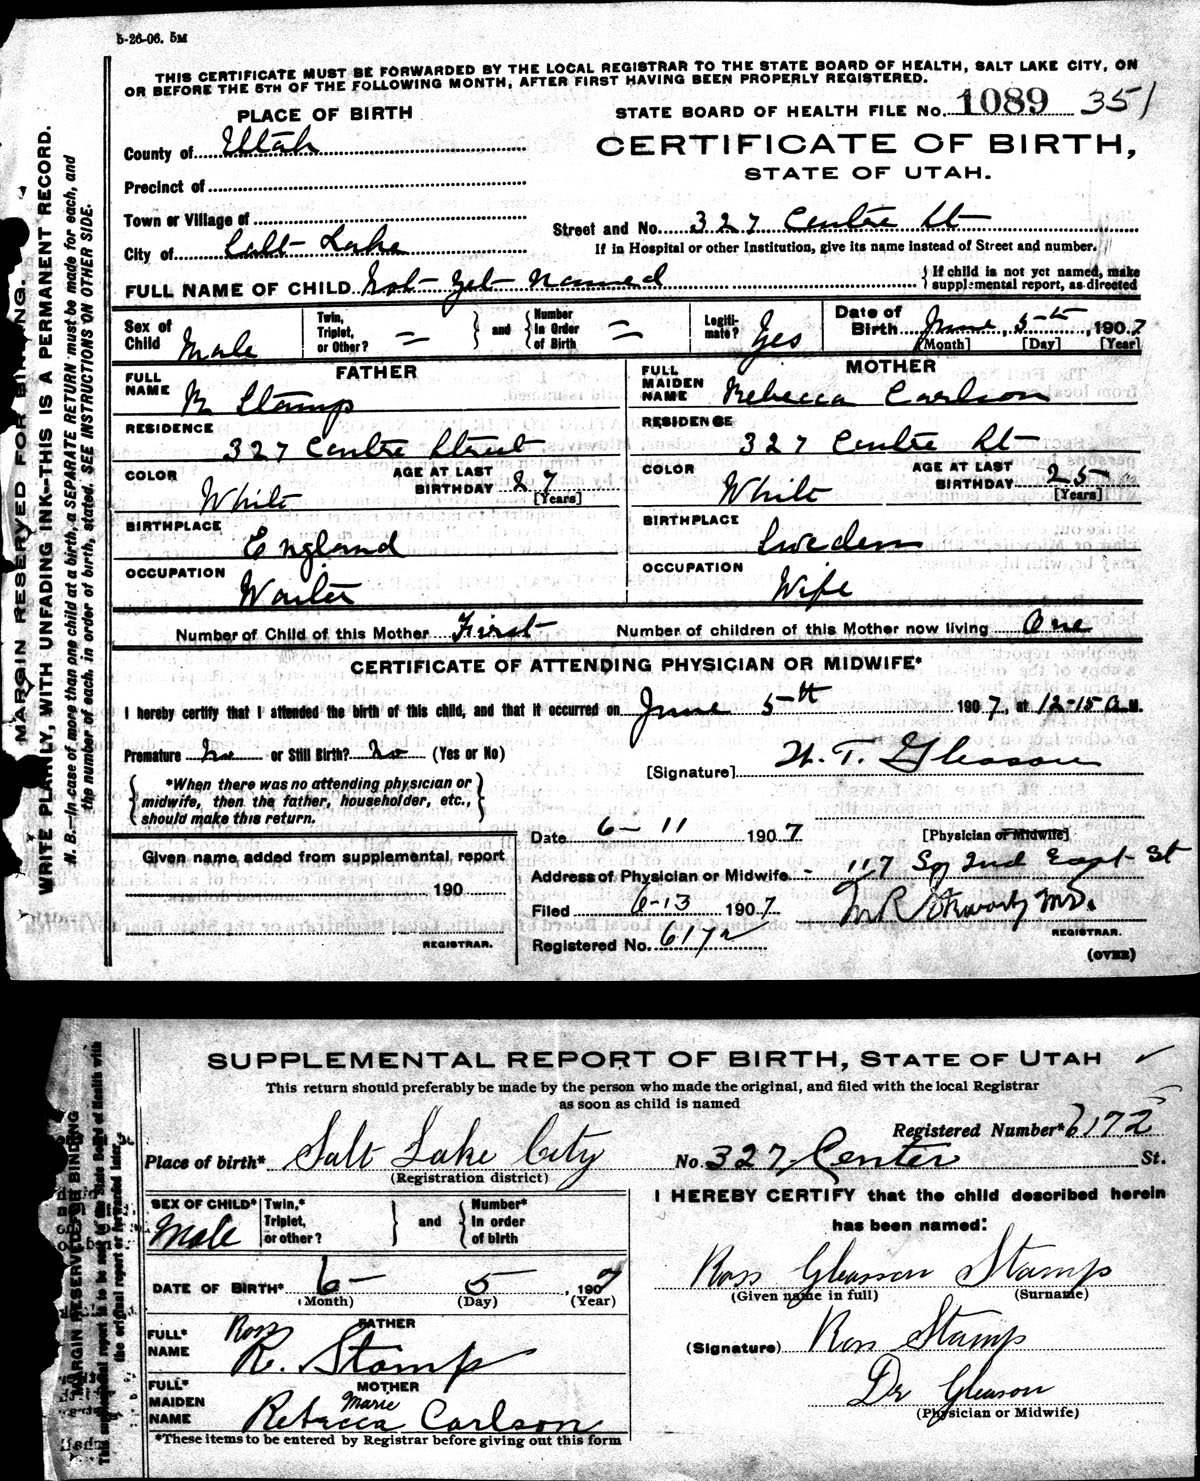 5-26-06. 5M
THIS CERTIFICATE MUST BE FORWARDED BY THE LOCAL REGISTRAR TO THE STATE BOARD OF HEALTH, SALT LAKE CITY, ON
OR BEFORE THE 5TH OF THE FOLLOWING MONTH, AFTER FIRST HAVING BEEN PROPERLY REGISTERED.
PLACE OF BIRTH
STATE BOARD OF HEALTH FILE No. 1089 351
County of Utah
CERTIFICATE OF BIRTH,
STATE OF UTAH.
Precinct of
Town or Village of
Street and No. 327 Centre St
City of Salt Lake
If in Hospital or other Institution, give its name instead of Street and number.
FULL NAME OF CHILD Not yet named
If child is not yet named, make
supplemental report, as directed
Sex of Child Male
Twin, Triplet, or Other? =
and
Number in Order of Birth =
Legiti-mate? Yes
Date of Birth June 5th, 1907
[Month] [Day] [Year]
FATHER
FULL NAME R Stamp
MOTHER
FULL MAIDEN NAME Rebecca Carlson
RESIDENCE 327 Centre Street
RESIDENCE 327 Centre St
COLOR White
AGE AT LAST BIRTHDAY 27 [Years]
COLOR White
AGE AT LAST BIRTHDAY 25 [Years]
BIRTHPLACE England
BIRTHPLACE Sweden
OCCUPATION Waiter
OCCUPATION Wife
Number of Child of this Mother First
Number of children of this Mother now living One
CERTIFICATE OF ATTENDING PHYSICIAN OR MIDWIFE*
I hereby certify that I attended the birth of this child, and that it occurred on June 5th 1907, at 12-15 A.M.
Premature No or Still Birth? No (Yes or No)
[Signature] W. T. Gleason
*When there was no attending physician or
midwife, then the father, householder, etc.,
should make this return.
Date 6-11 1907
[Physician or Midwife]
Given name added from supplemental report
190
REGISTRAR.
Address of Physician or Midwife - 117 So 2nd East St
Filed 6-13 1907
M R Stewart, MD.
REGISTRAR.
Registered No. 6172
(OVER)
MARGIN RESERVED FOR BINDING.
WRITE PLAINLY, WITH UNFADING INK—THIS IS A PERMANENT RECORD.
N. B.—In case of more than one child at a birth, a SEPARATE RETURN must be made for each, and
the number of each, in order of birth, stated. SEE INSTRUCTIONS ON OTHER SIDE.
SUPPLEMENTAL REPORT OF BIRTH, STATE OF UTAH
This return should preferably be made by the person who made the original, and filed with the local Registrar
as soon as child is named
Registered Number* 6172
Place of birth* Salt Lake City
No. 327 Center St.
(Registration district)
I HEREBY CERTIFY that the child described herein
has been named:
SEX OF CHILD* Male
Twin,* Triplet, or other?
and
Number* In order of birth
DATE OF BIRTH* 6- 5 , 1907
(Month) (Day) (Year)
Ross Gleason Stamp
(Given name in full) (Surname)
FATHER
FULL* NAME Ross R. Stamp
(Signature) Ross Stamp
MOTHER
FULL* MAIDEN NAME Rebecca Marie Carlson
Dr Gleason
(Physician or Midwife)
*These items to be entered by Registrar before giving out this form
MARGIN RESERVED FOR BINDING